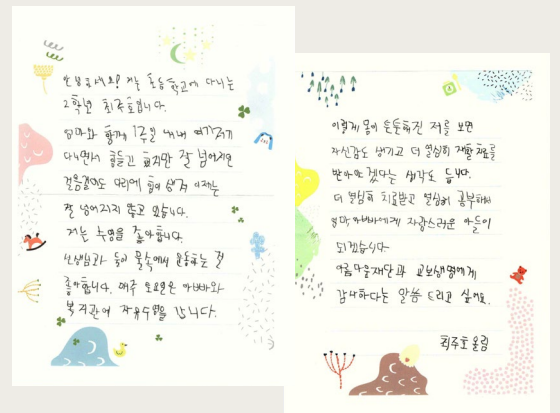 안녕하세요! 저는 초등학교에 다니는
2학년 최주호입니다.
엄마와 함께 1주일 내내 여기저기
다니면서 힘들고 하지만 잘 넘어지던
걸음걸이도 다리에 힘이 생겨 이제는
잘 넘어지지 않고 있습니다.
저는 수영을 좋아합니다.
선생님과 둘이 물속에서 운동하는 걸
좋아합니다. 매주 토요일은 아빠와
복지관에 자유수영을 갑니다.
이렇게 몸이 튼튼해진 저를 보면
자신감도 생기고 더 열심히 재활치료를
받아야겠다는 생각도 듭니다.
더 열심히 치료받고 열심히 공부해서
엄마아빠에게 자랑스러운 아들이
되겠습니다
아름다운재단과 교보생명에게
감사하다는 말씀 드리고 싶어요.
최주호 올림